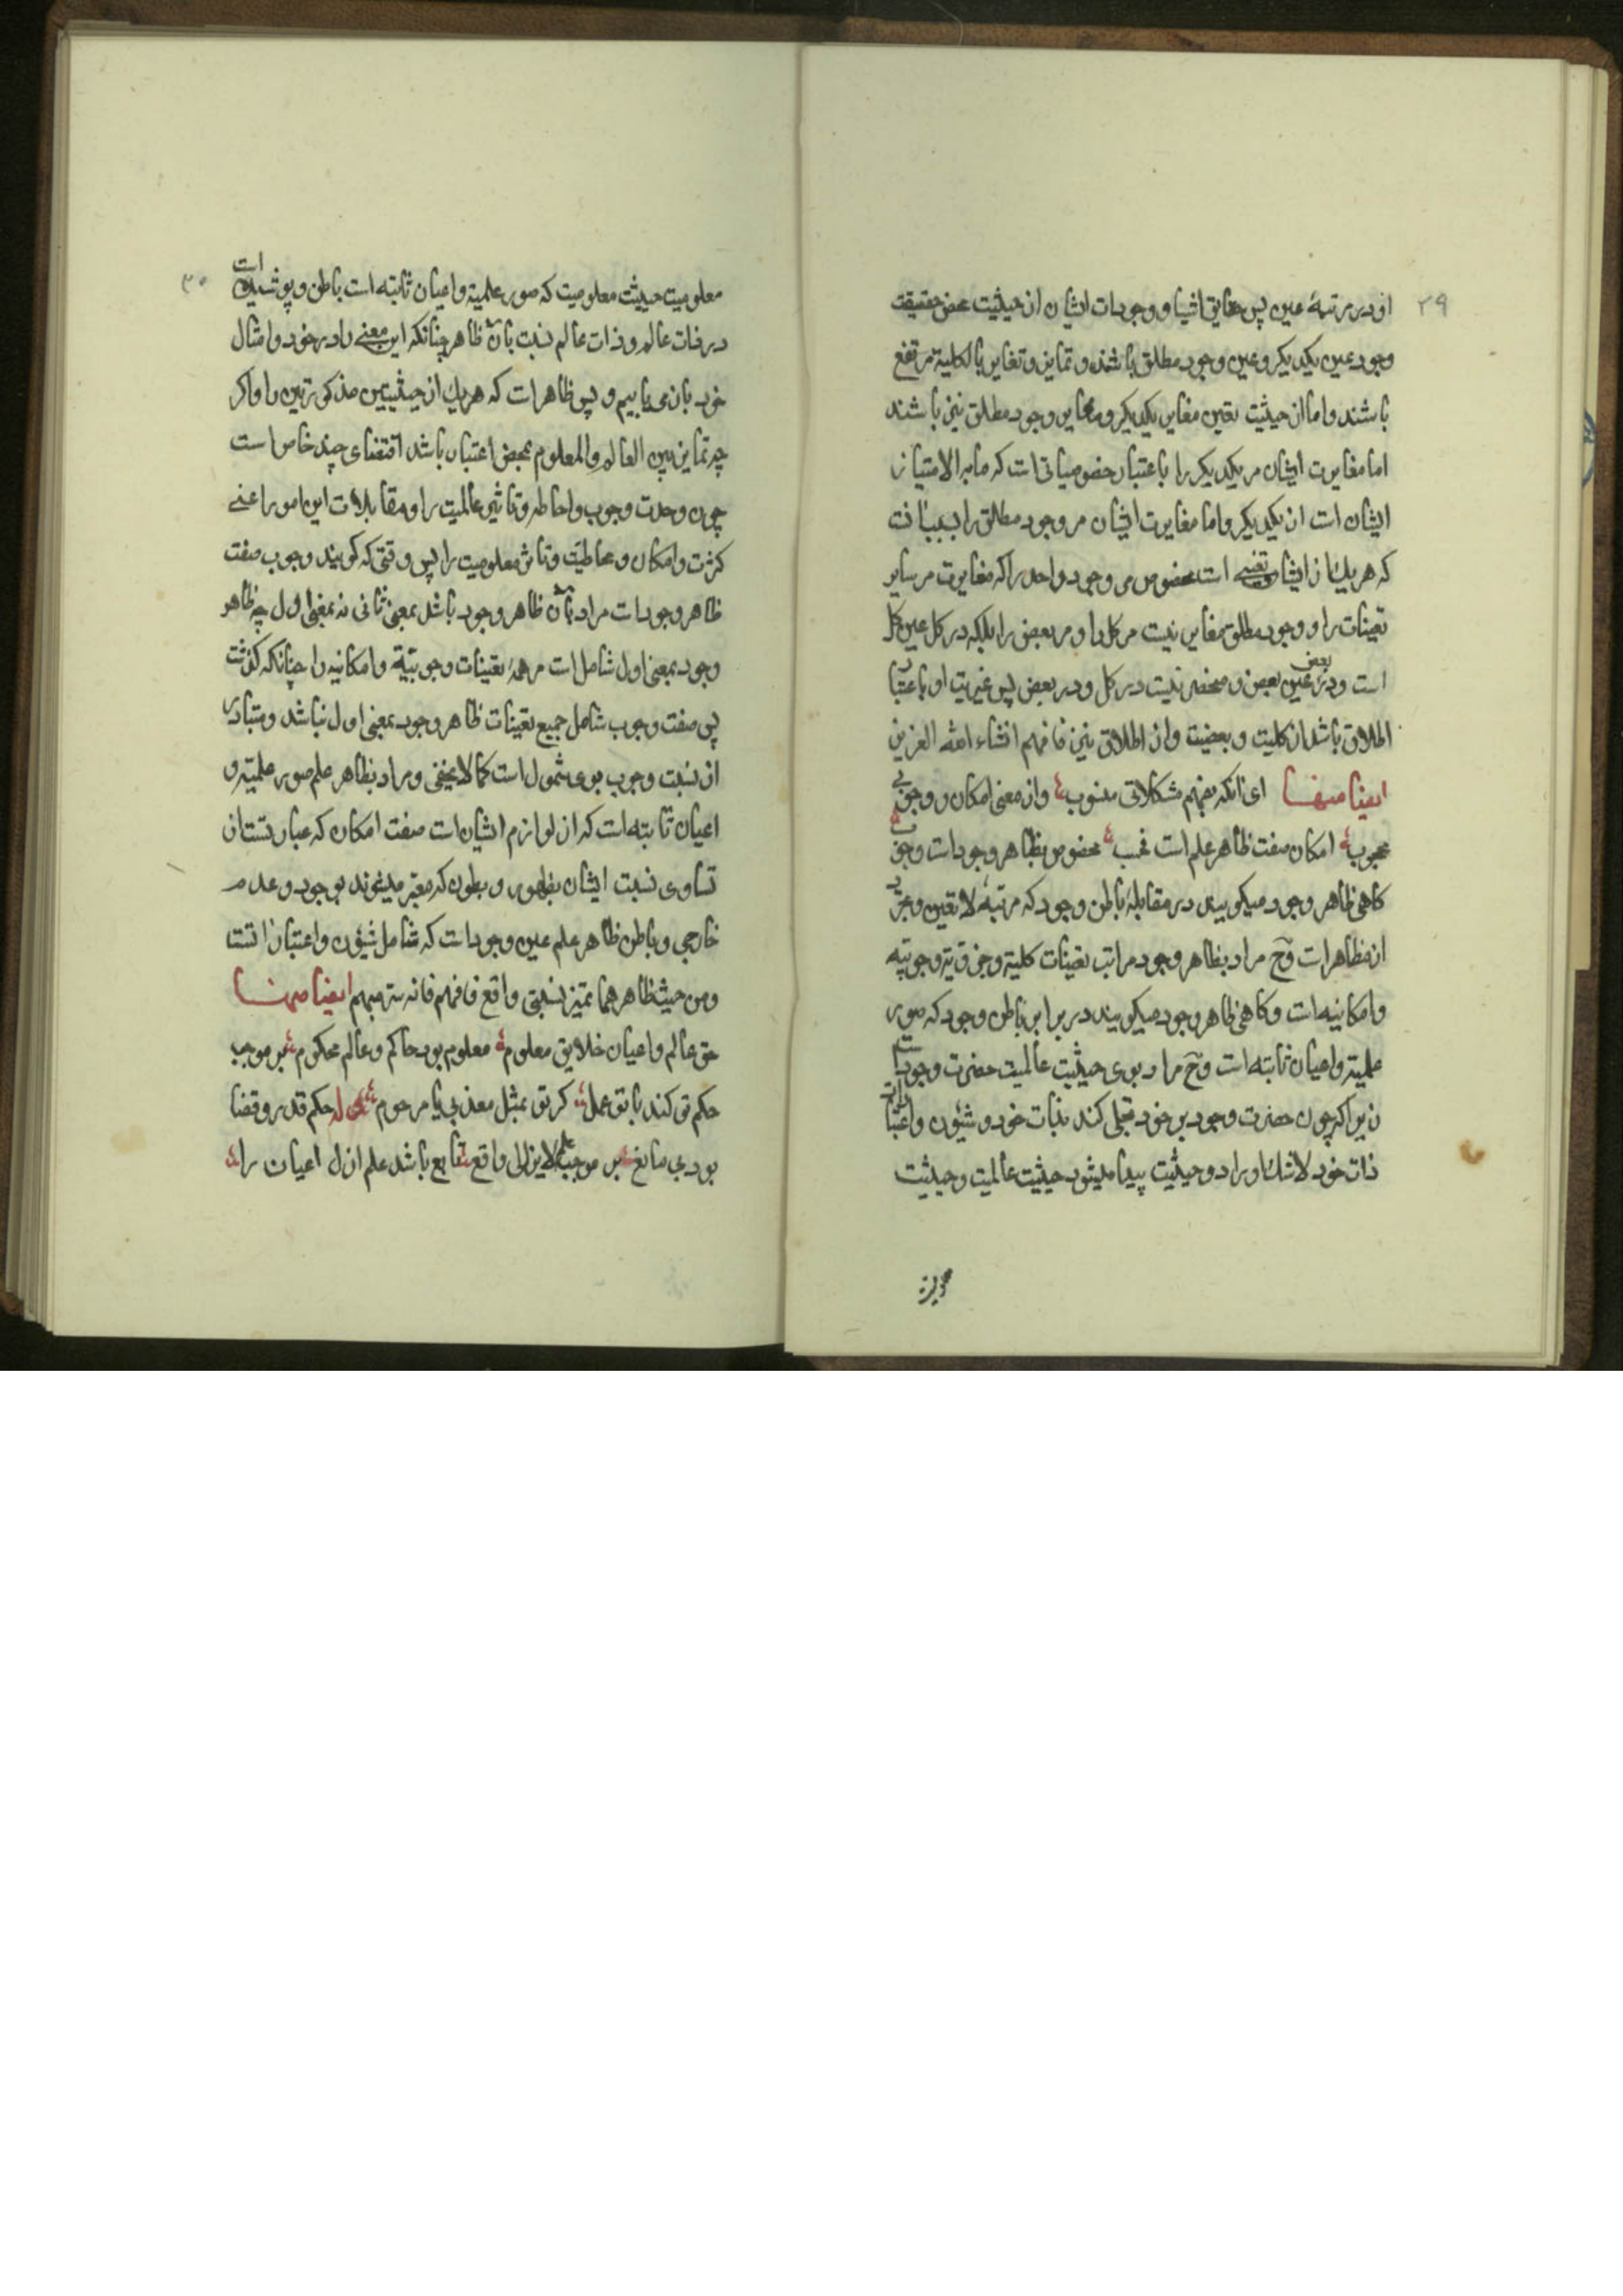 ۲۹
او در مرتبهٔ عین پس حقایق اشیا و وجودات ایشان از حیثیت محض حقیقت
وجود عین یکدیکر و عین وجود مطلق باشند و تمایز و تغایر بالکلیة مرتفع
باشند و اما از حیثیت تعین مغایر یکدیکر و مغایر وجود مطلق نیز باشند
اما مغایرت ایشان مر یکدیکر را باعتبار خصوصیاتی است که ما به الامتیاز
ایشان است از یکدیکر و اما مغایرت ایشان مر وجود مطلق را بسبب آنست
که هر یك از ایشان تعینی است مخصوص مر وجود واحد را که مغایرت مر سایر
تعینات را و وجود مطلق مغایر نیست مر کل را و مر بعض را بلکه در کل عین کل
است و در بعض عین بعض و منحصر نیست در کل و در بعض پس غیریت او باعتبار
اطلاق باشد از کلیت و بعضیت و از اطلاق نیز فافهم انشاء الله العزیز
ایضا منها ای آنکه بفهم مشکلاتی منسوب وز معنی امکان و وجوبی
محجوب امکان صفت ظاهر علم است فحسب مخصوص بظاهر وجود است وجوب
کاهی ظاهر وجود میکویند در مقابلهٔ باطن وجود که مرتبهٔ لا تعین و تجرد
از مظاهر است وح مراد بظاهر وجود مراتب تعینات کلیة و جزؤیة وجوبیه
وامکانیه است وکاهی ظاهر وجود میکویند در برابر باطن وجود که صور
علمیة و اعیان ثابته است وح مراد بوی حیثیت عالمیت حضرت وجود است
زیرا که چون حضرت وجود بر خود تجلی کند بذات خود و شیؤن و اعتبارات
ذات خود لا شك او را دو حیثیت پیدا میشود حیثیت عالمیت و حیثیت
۳۰
معلومیت حیثیت معلومیت که صور علمیة و اعیان ثابته است باطن و پوشیده است
در ذات عالم و ذات عالم نسبت بآن ظاهر چنانکه این معنی را در خود و امثال
خود بآن می یابیم و پس ظاهر است که هر یك از حیثیتین مذکورتین را و اکر
چه تمایز بین العالم والمعلوم بمحض اعتبار باشد اقتضای چند خاص است
چون وحدت وجوب و احاطه و تاثیر عالمیت را و مقابلات این امور اعنی
کثرت و امکان و محاطیت و تاثر معلومیت را پس وقتی که کویند وجوب صفت
ظاهر وجود است مراد بآن ظاهر وجود باشد بمعنی ثانی نه بمعنی اول چه ظاهر
وجود بمعنی اول شامل است مر همهٔ تعینات وجوبیة و امکانیه را چنانکه کذشت
پس صفت وجوب شامل جمیع تعینات ظاهر وجود بمعنی اول نباشد و متبادر
از نسبت وجوب بوی شمول است کما لا یخفی و مراد بظاهر علم صور علمیة و
اعیان ثابته است که از لوازم ایشان است صفت امکان که عبارتست از
تساوی نسبت ایشان بظهور و بطون که معبر میشوند بوجود و عدم
خارجی و باطن ظاهر علم عین وجود است که شامل شیؤن و اعتبار
ومن حیث ظاهرهما تمیز نسبتی واقع فافهم فانه سر مبهم ایضا منها
حق عالم و اعیان خلایق معلوم معلوم بود حاکم و عالم محکوم بر موجب
حکم تو کند با تو عمل کر تو بمثل معذبی یا مرحوم حکم قدر و قضا
بود بی مانع بر موجب علم لایزالی واقع تابع باشد علم ازل اعیان را